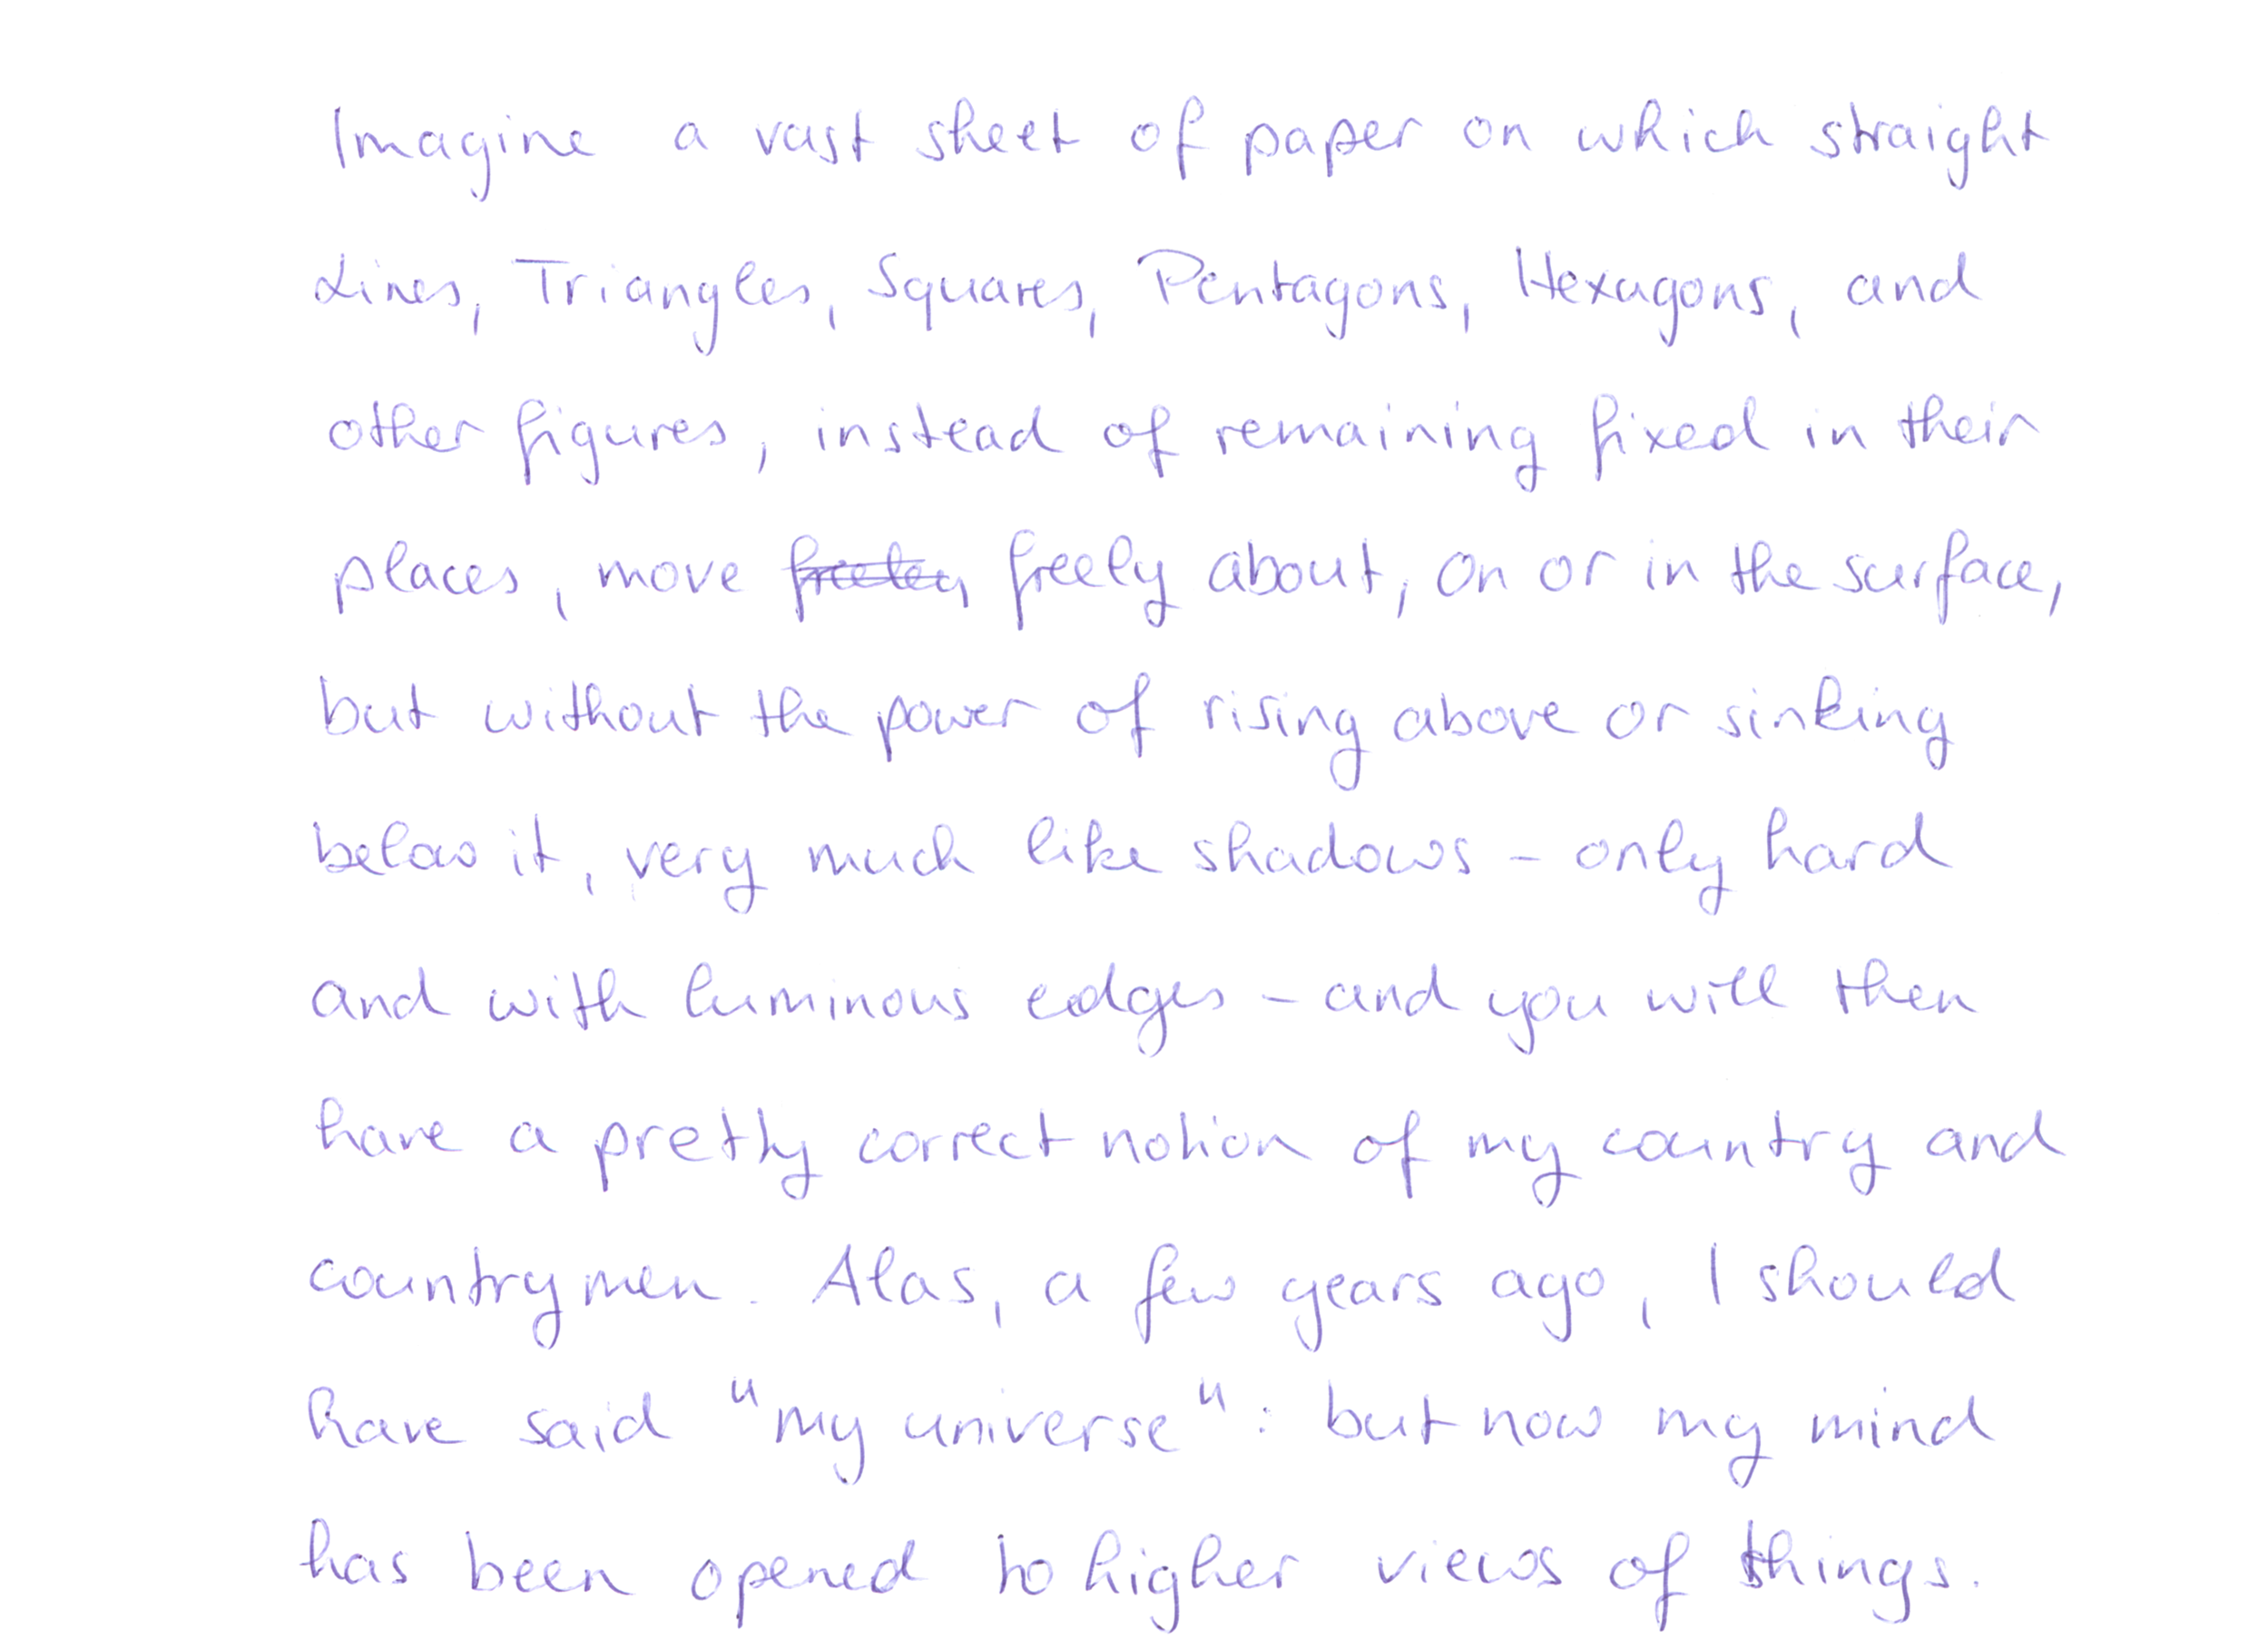 Imagine a vast sheet of paper on which straight
Lines, Triangles, Squares, Pentagons, Hexagons, and
other figures, instead of remaining fixed in their
places, move freely about, on or in the surface,
but without the power of rising above or sinking
below it, very much like shadows - only hard
and with luminous edges - and you will then
have a pretty correct notion of my country and
countrymen. Alas, a few years ago, I should
have said "my universe": but now my mind
has been opened to higher views of things.